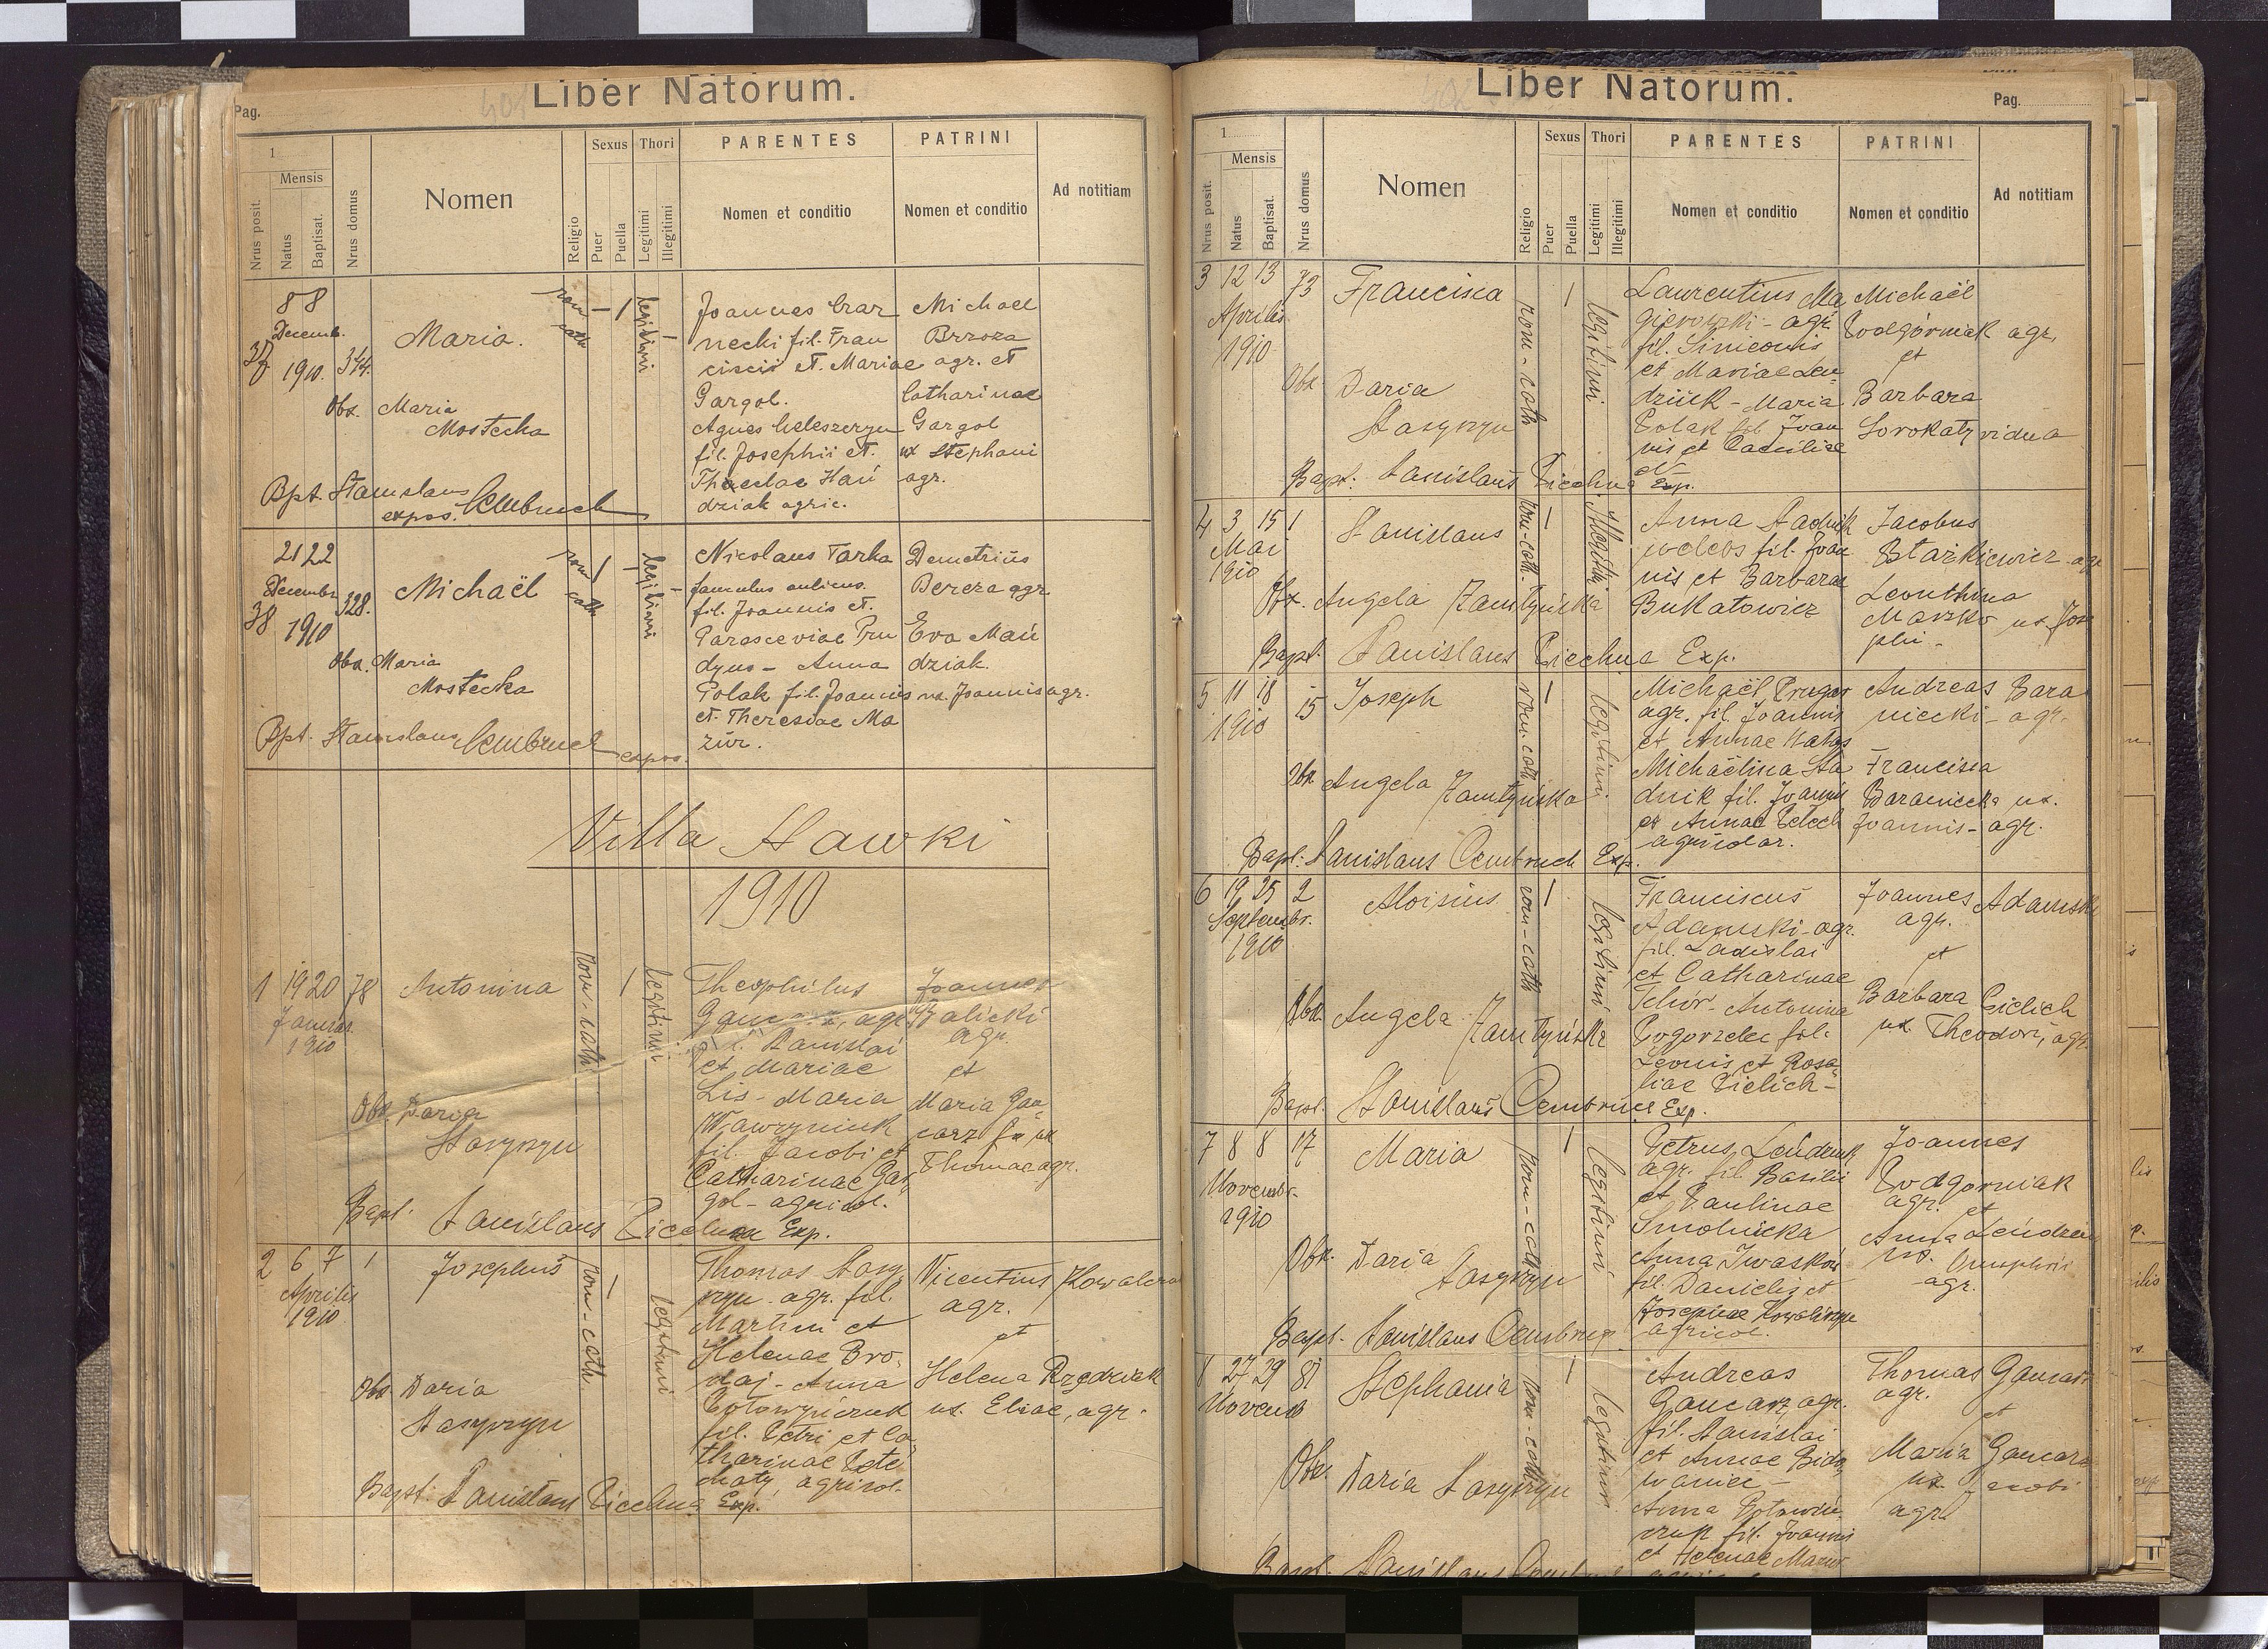 Liber Natorum.
Pag.
1
Mensis
Nrus posit.
Natus
Baptisat.
Nrus domus
Nomen
Religio
Sexus
Puer
Puella
Thori
Legitimi
Illegitimi
PARENTES
Nomen et conditio
PATRINI
Nomen et conditio
Ad notitiam
8 8
Decemb.
1910.
344.
Maria.
rom cath
legitimi
Obx. Maria
Mostecka
Bpt. Stanislaus Cembruch
expos.
Joannes
necki fil. Fran
ciscii et. Mariae
Gargol.
Agnes
fil. Josephii et.
Theclae Hań
dziak agric.
Michael
Brzoza
agr. et
Catharinae
Gargol
ux Stephani
agr.
21 22
Decembr
38
1910
328.
Michaël
rom cath
legitimi
Obx. Maria
Mostecka
Bpt. Stanislaus Cembruch
expos.
Nicolaus Tarka
famulus aulicus.
fil. Joannis et.
Parasceviae Pru
dyus - Anna
Polak fil. Joannis
et. Theresiae Ma
zur.
Demetrius
Bereza agr
Eva Mań
dziak.
ux. Joannis agr.
Villa Sławki
1910
1 19 20 78
Januar.
1910
Antonina
rom-cath
legitimi
Obx. Daria
Stasyszyn
Bapt. Stanislaus Piechna Exp.
Theophilus
agr.
Stanislai
et Mariae
Lis - Maria
Wawryniuk
fil. Jacobi et
Catharinae Gar
gol - agricol.
Joannes
Halicki
agr.
et
Maria Gan
carz ux
Thomae agr.
2 6 7 1
Aprilis
1910
Josephus
rom-cath.
legitimi
Obx Daria
Stasyszyn
Bapt. Stanislaus Piechna Exp.
Thomas Stasy
szyn agr. fil.
Martini et
Helenae Bro,
daj - Anna
fil. Petri et Ca
tharinae
agricol.
Vicentius
agr.
et
Helena Rzędziak
ux. Eliae, agr.
Liber Natorum.
Pag.
1
Mensis
Nrus posit.
Natus
Baptisat.
Nrus domus
Nomen
Religio
Sexus
Puer
Puella
Thori
Legitimi
Illegitimi
PARENTES
Nomen et conditio
PATRINI
Nomen et conditio
Ad notitiam
3 12 13 73
Aprilis
1910
Francisca
rom-cath
legitimi
Obx. Daria
Stasyszyn
Bapt. Stanislaus Piechna Exp.
Laurentius Ma
gierowski - agr.
fil. Simeonis
et Mariae Len
dziuk - Maria
Polak fil. Joan
nis et Caeciliae
Michaël
Podgórniak agr,
et
Barbara
vidua
4 3 15 1
Mai
1910
Stanislaus
rom-cath-
Illegitimi
Obx. Angela Zamtyńska
Bapt. Stanislaus Piechna Exp.
Anna Stadnik
fil. Joan
nis et Barbarae
Bukatowicz
Jacobus
Błażkiewicz agr
Marzko ux. Jose
phi -
5 11 18 15
1910
Joseph
rom. cath
legitimi
Obx Angela Zamtyńska
Bapt. Stanislaus Cembruch Exp.
Michaël Prugar
agr. fil. Joannis
et Annae
Michaëlina Sta
dnik fil. Joannis
et Annae
Andreas Bara
niecki - agr.
Francisca
Baraniecka ux.
Joannis - agr.
6 19 25 2
Septembr.
1910
Aloisius
rom-cath
legitimi
Obx. Angela Zamtyńska
Bapt. Stanislaus Cembruch Exp.
Franciscus
Adamski - agr.
fil. Ladislai
et Catharinae
Tchór - Antonina
Pogorzelec fil.
Leonis et Rosa
liae Pielich -
Joannes Adamski
agr.
et
Barbara
ux. Theodori, agr.
7 8 8 17
Novembr.
1910
Maria
rom-cath
legitimi
Obx. Daria
Stasyszyn
Bapt. Stanislaus Cembruch
Petrus Lendziuk
agr. fil. Basilii
et Paulinae
Smolnicka
Anna Iwaskow
fil. Danielis et
Josephae
agricol.
Joannes
Podgorniak
agr. et
Anna
ux. Onuphrii
agr.
8 27 29 81
Novemb
Stephania
rom-cath
legitimi
Obx. Daria Stasyszyn
Bapt. Stanislaus
Andreas
Gancarz, agr.
fil. Stanislai
et Annae
Anna
fil. Joannis
et Helenae
Thomas Gancarz
agr.
et
Maria Gancarz
ux. Jacobi
agr.